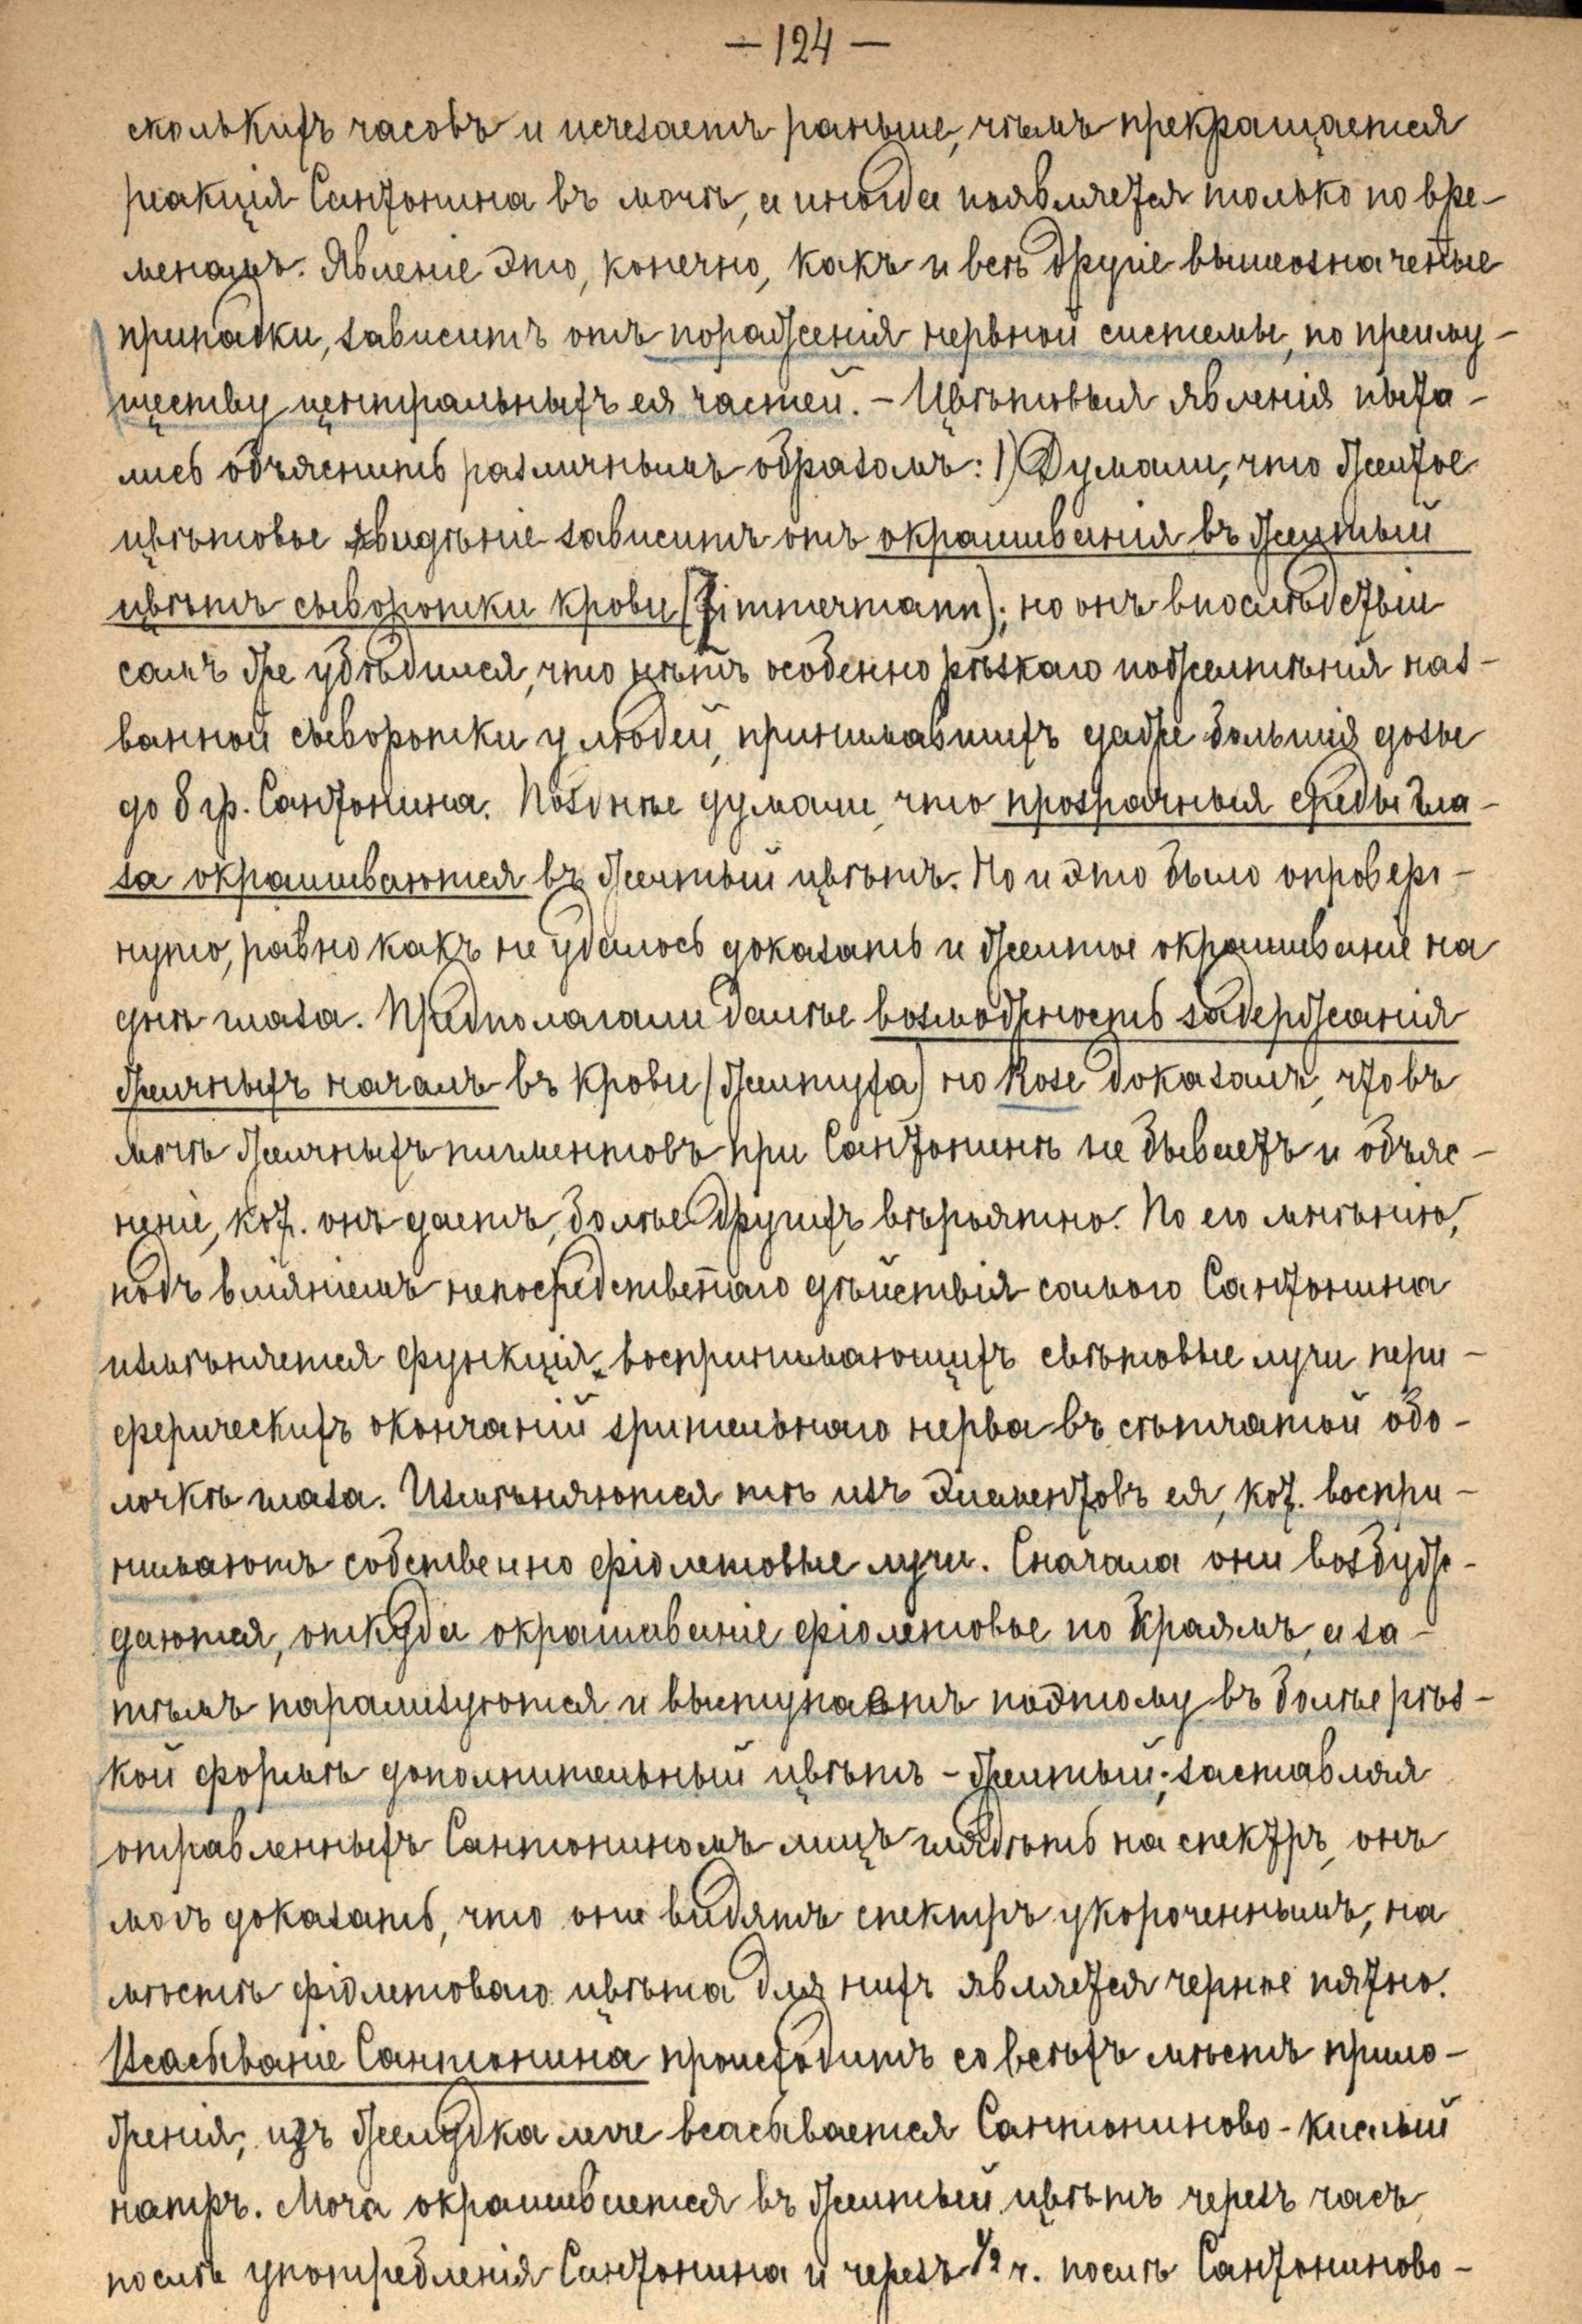 — 124 —
сколькихъ часовъ и исчезаетъ раньше, чѣмъ прекращается
реакція Сантонина въ мочѣ, а иногда появляется только по вре-
менамъ. Явленіе это, конечно, какъ и всѣ другіе вышеозначенные
припадки, зависитъ отъ пораженія нервной системы, по преиму-
ществу центральныхъ ея частей. – Цвѣтовыя явленія пыта-
лись объяснить различнымъ образомъ: 1) Думали, что желтое
цвѣтовое видѣніе зависитъ отъ окрашиванія въ желтый
цвѣтъ сыворотки крови (Zimmermann); но онъ впослѣдствіи
самъ же убѣдился, что нѣтъ особенно рѣзкаго пожелтѣнія наз-
ванной сыворотки у людей, принимавшихъ даже большія дозы
до 8 гр. Сантонина. Позднѣе думали, что прозрачныя среды гла-
за окрашиваются въ желтый цвѣтъ. Но и это было опроверг-
нуто, равно какъ не удалось доказать и желтое окрашиваніе на
днѣ глаза. Предполагали далѣе возможность задержанія
желчныхъ началъ въ крови (желтуха) но Rose доказалъ, что въ
мочѣ желчныхъ пигментовъ при Сантонинѣ не бываетъ и объяс-
неніе, кот. онъ даетъ, болѣе другихъ вѣроятно. По его мнѣнію,
подъ вліяніемъ непосредственнаго дѣйствія самого Сантонина
измѣняется функція воспринимающихъ свѣтовые лучи пери-
ферическихъ окончаній зрительнаго нерва въ сѣтчатой обо-
лочкѣ глаза. Измѣняются тѣ изъ элементовъ ея, кот. воспри-
нимаютъ собственно фіолетовые лучи. Сначала они возбуж-
даются, откуда окрашиваніе фіолетовое по краямъ, а за-
тѣмъ парализуются и выступаетъ поэтому въ болѣе рѣз-
кой формѣ дополнительный цвѣтъ – желтый; заставляя
отравленныхъ Сантониномъ лицъ глядѣть на спектръ, онъ
могъ доказать, что они видятъ спектръ укороченнымъ, на
мѣстѣ фіолетоваго цвѣта для нихъ является черное пятно.
Всасываніе Сантонина происходитъ со всѣхъ мѣстъ прило-
женія; изъ желудка легче всасывается Сантониново-кислый
натръ. Моча окрашивается въ желтый цвѣтъ черезъ часъ
послѣ употребленія Сантонина и черезъ 1/2 ч. послѣ Сантониново-